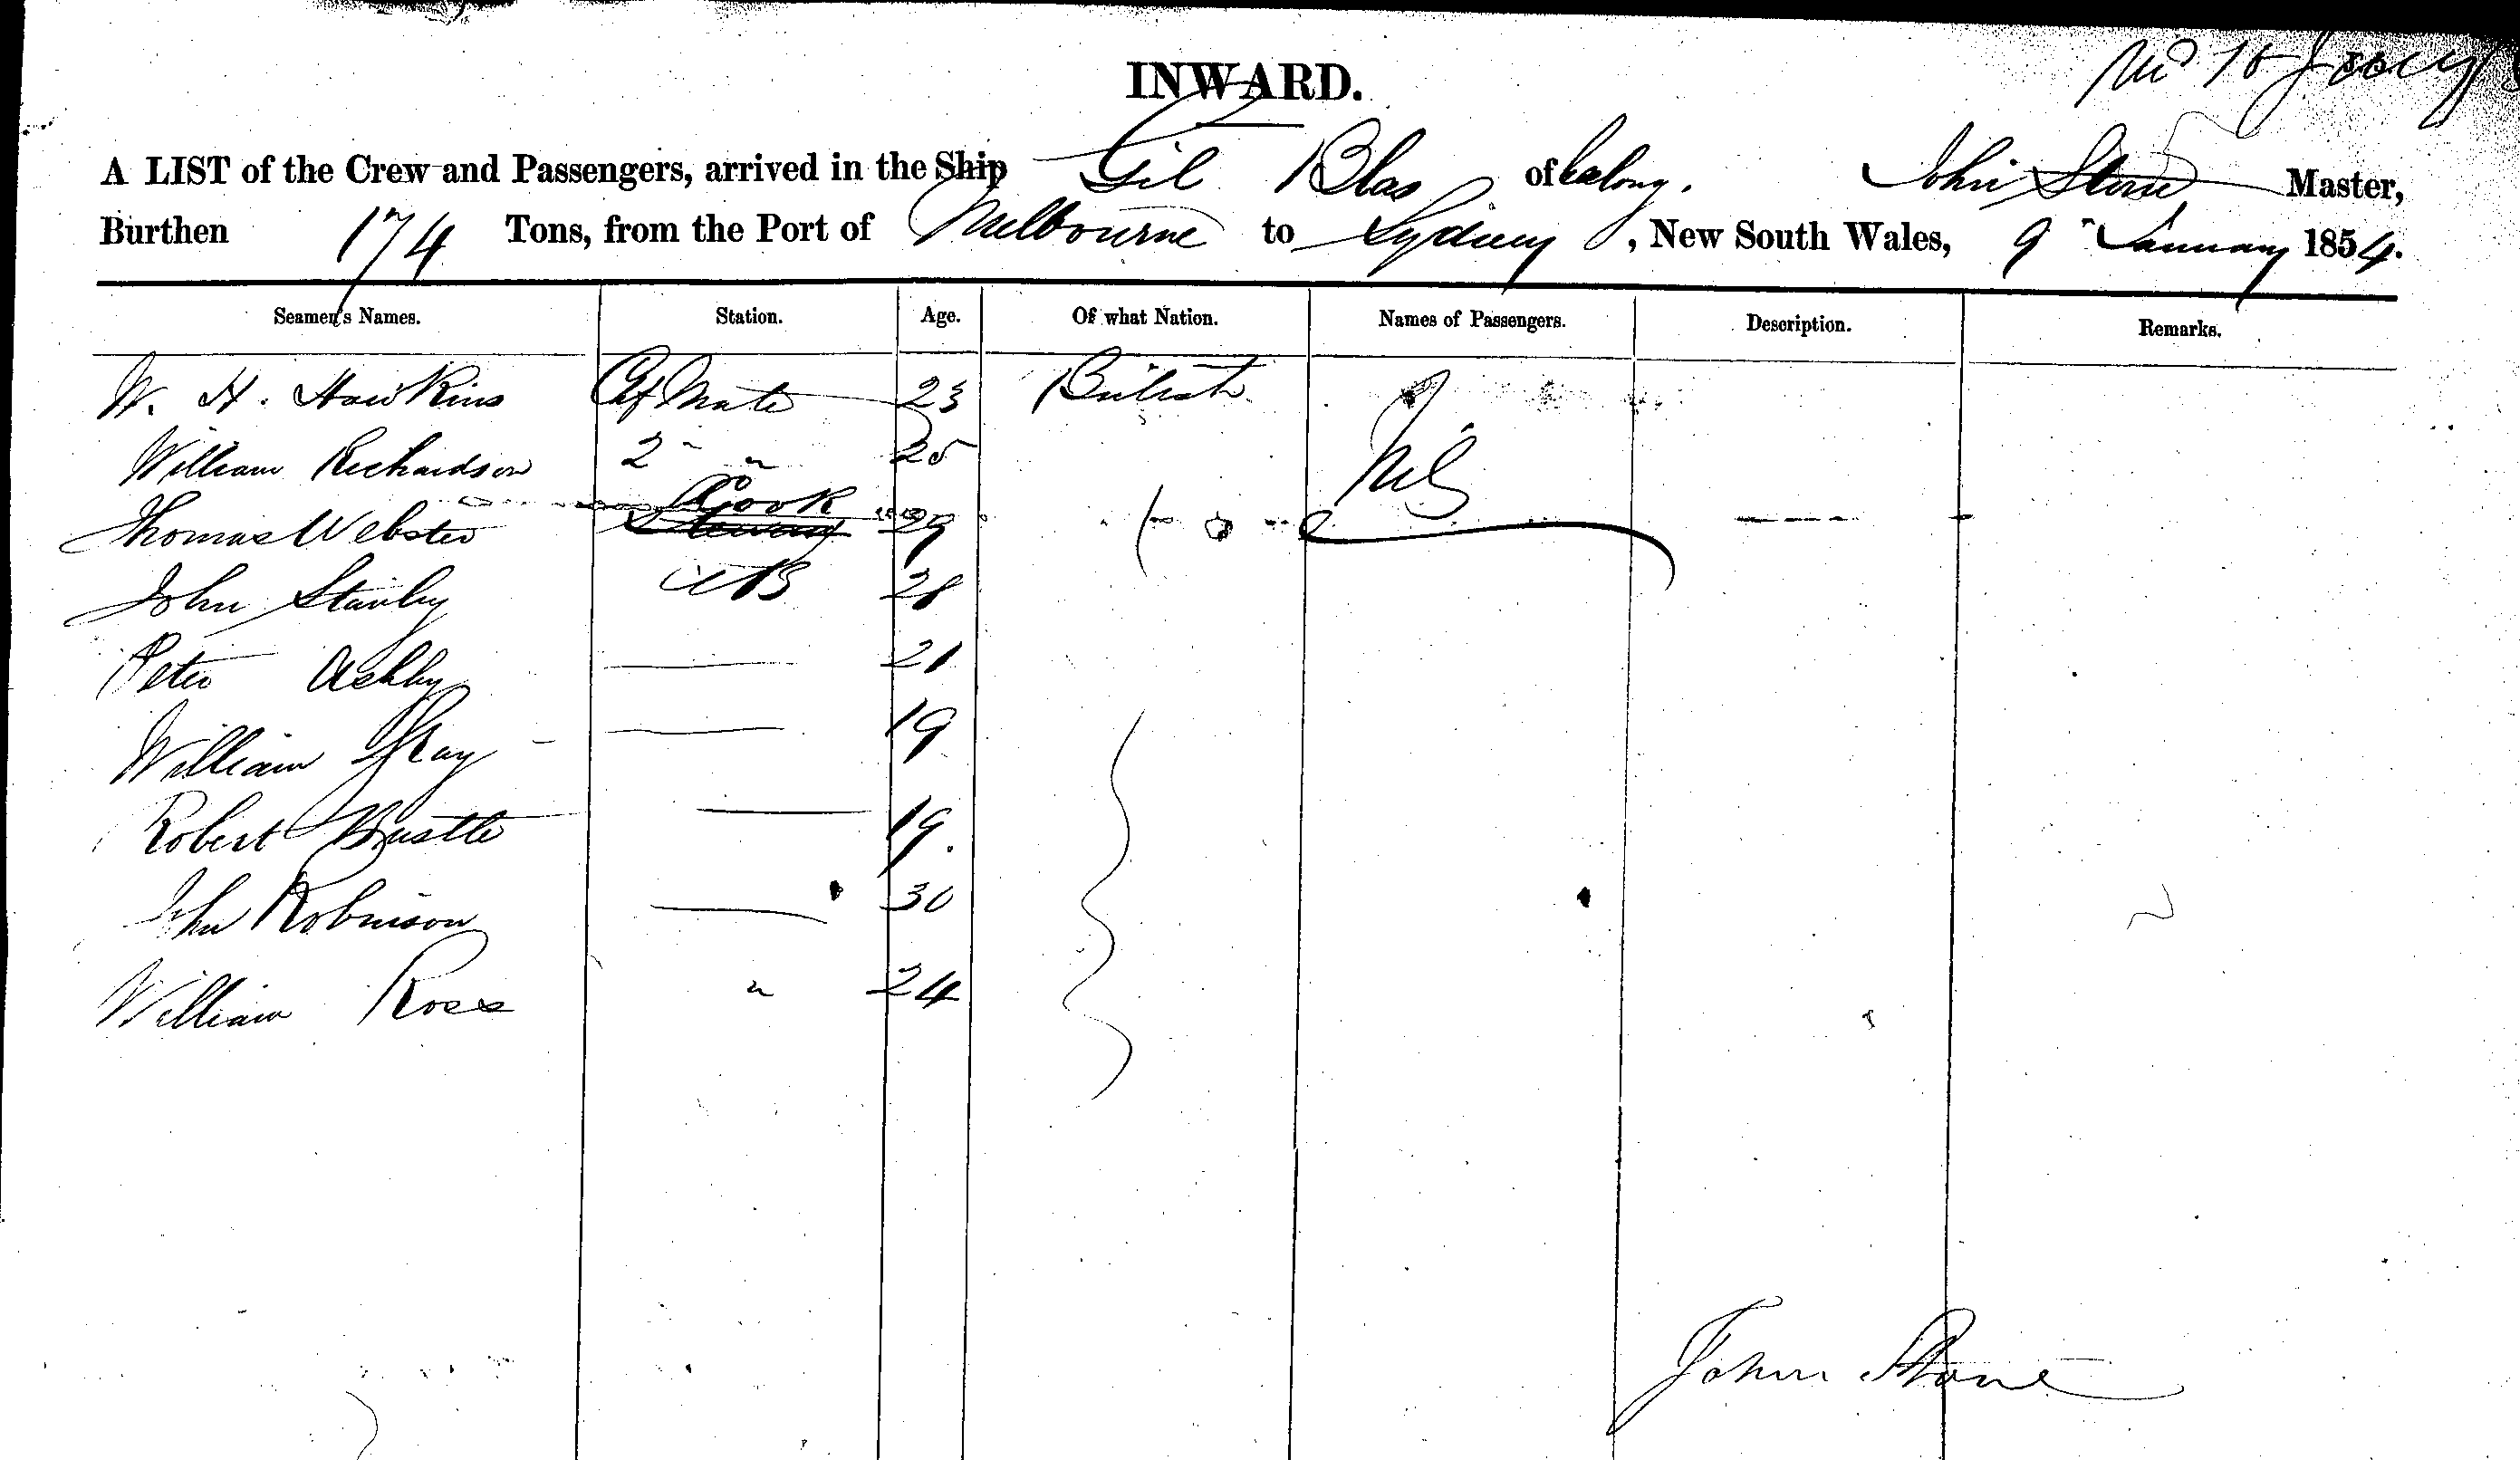 INWARD.
A LIST of the Crew and Passengers, arrived in the Ship Gil Blas of John Stone Master,
Burthen 174 Tons, from the Port of Melbourne to Sydney, New South Wales, 9 January 1854.
Seamen's Names. Station. Age. Of what Nation. Names of Passengers. Description. Remarks.
W. H. Hawkins Chf Mate 23 British
William Richardson 2 " 25 Nil
Cook
Thomas Webster Steward 29
John Stanley AB 28
Peter Ashby 21
William 19
Robert 19.
John Robinson 30
William Ross " 24
John Stone